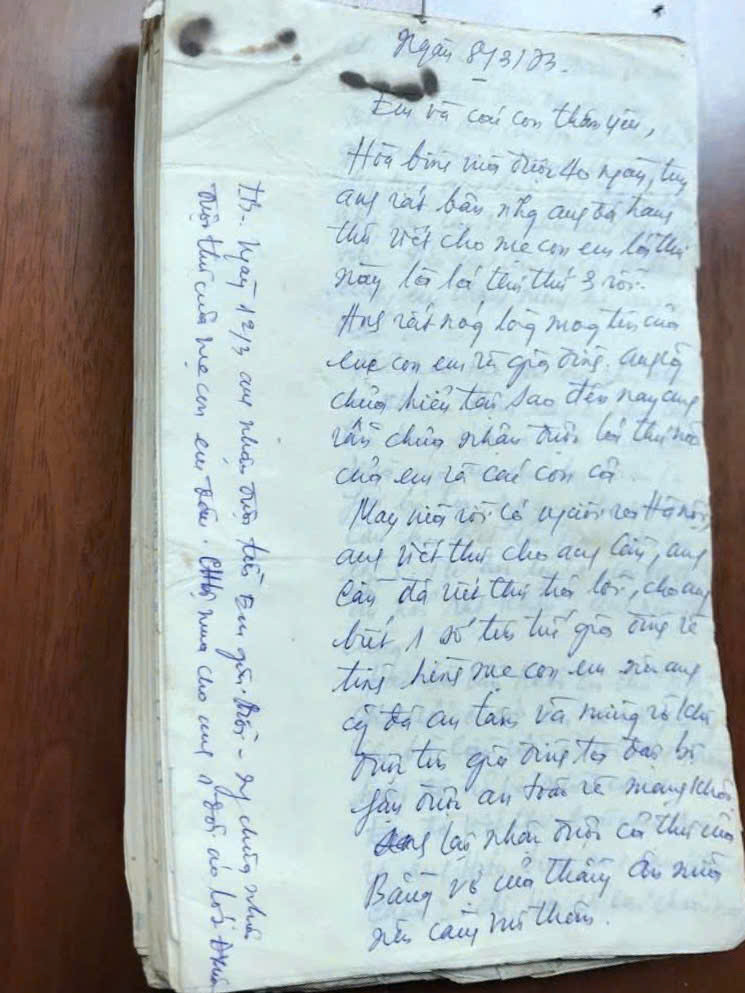 Ngày 8/3/73.
Em và các con thân yêu,
Hòa bình mới được 40 ngày, tuy
ang rất bận nhg ang đã hang
thư viết cho mẹ con em lá thư
này là lá thư thứ 3 rồi.
Ang rất nóg lòg mog tin của
mẹ con em và gia đình. ang cg
chưa hiểu tại sao đến nay ang
vẫn chưa nhận được lá thư nào
của em và các con cả.
May mới rồi có người ra Hà nội,
ang viết thư cho ang Cần, ang
Cần đã viết thư trả lời, cho ang
biết 1 số tin tức gia đình về
tình hình mẹ con em nên ang
cg đã an tâm và mừng rỡ khi
được tin gia đình ta đại bộ
fận được an toàn và mạng khỏe
lại nhận được cả thư của
Băng về của thầy Ân nữa
nên càng vui thêm.
TB. Ngày 12/3 ang nhận được tin em gửi. Rồi - chưa nhận
được thư của mẹ con em đâu. mua cho ang 1 đôi